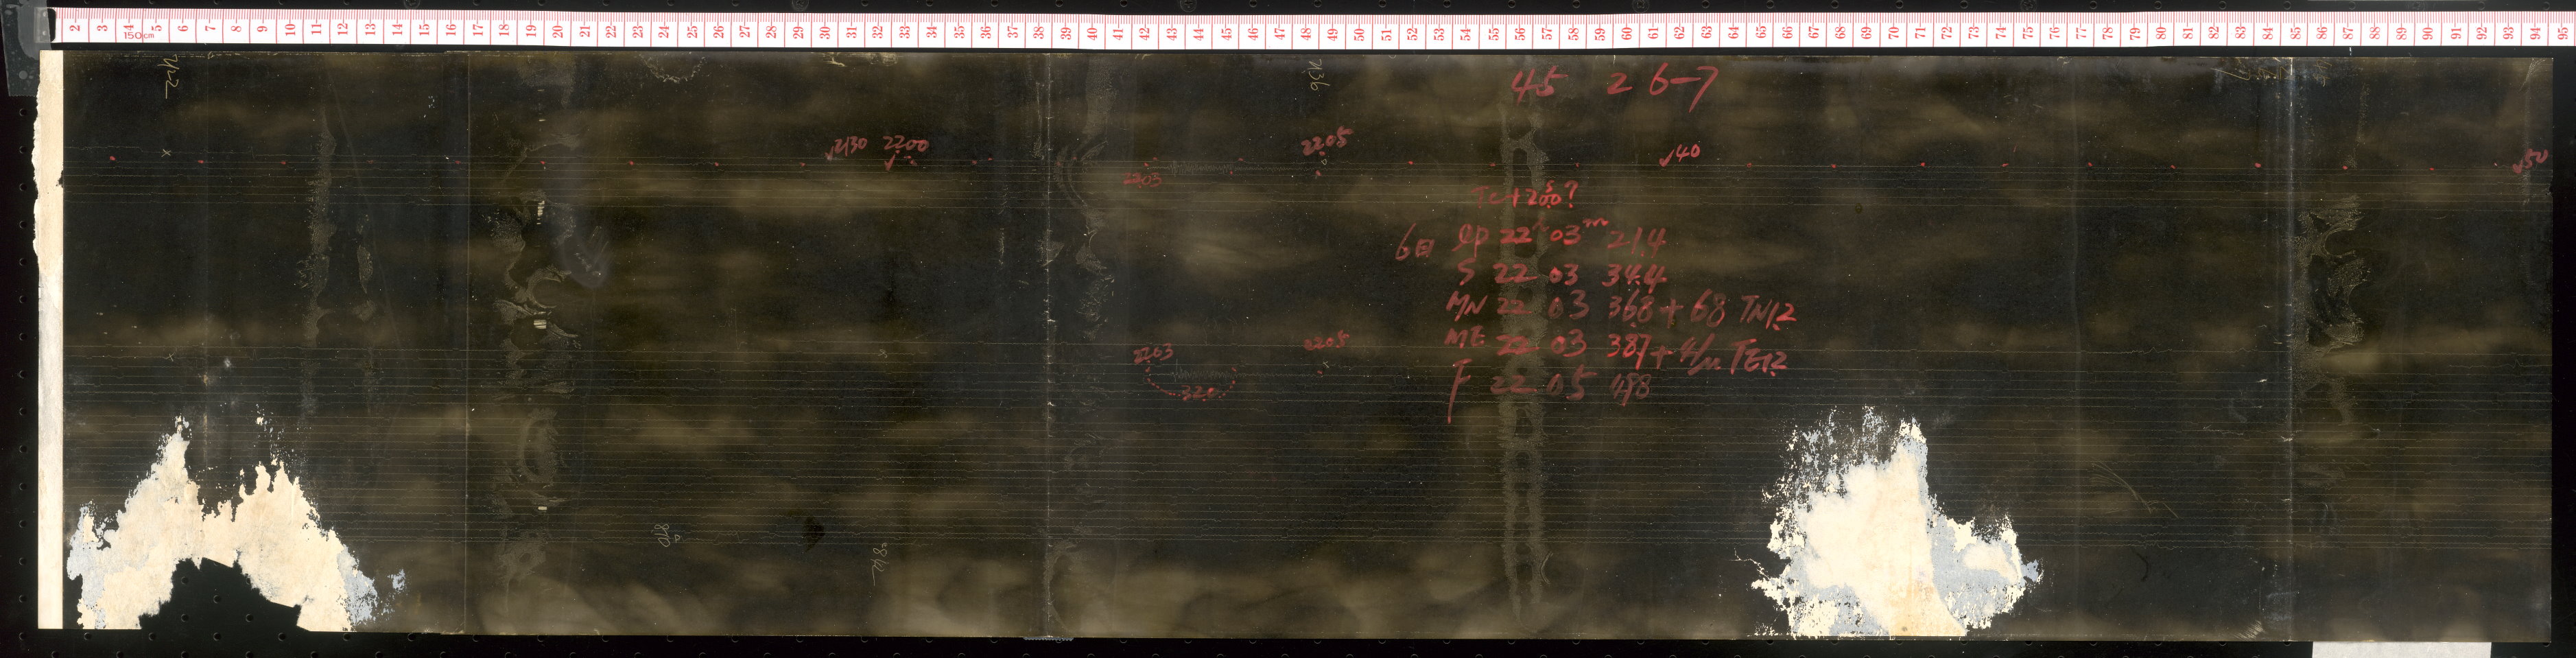 2 3 4 5 6 7 8 9 10 11 12 13 14 15 16 17 18 19 20 21 22 23 24 25 26 27 28 29 30 31 32 33 34 35 36 37 38 39 40 41 42 43 44 45 46 47 48 49 50 51 52 53 54 55 56 57 58 59 60 61 62 63 64 65 66 67 68 69 70 71 72 73 74 75 76 77 78 79 80 81 82 83 84 85 86 87 88 89 90 91 92 93 94 95
150cm
45 26-7
2130 2200
2203
2205
40
50
Tc+200?
6日 eP 22h 03m 21.4
S 22 03 34.4
MN 22 03 36.8 + 68 TN1.2
ME 22 03 38.7 TE1.2
F 22 05
2203
320